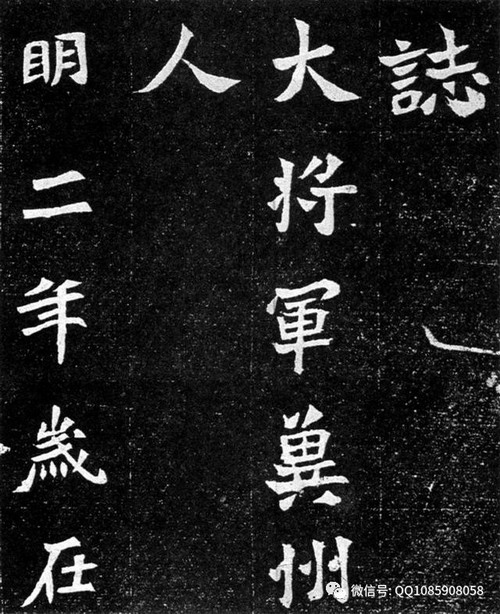 誌
大将軍冀州
人
明二年歲在
微信号: QQ1085908058